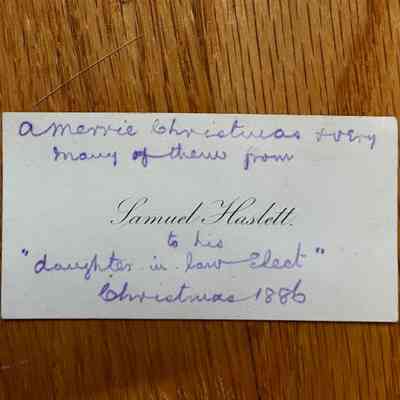 A Merrie Christmas & very
many of them from
Samuel Haslett.
to his
"daughter-in-law Elect"
Christmas 1886